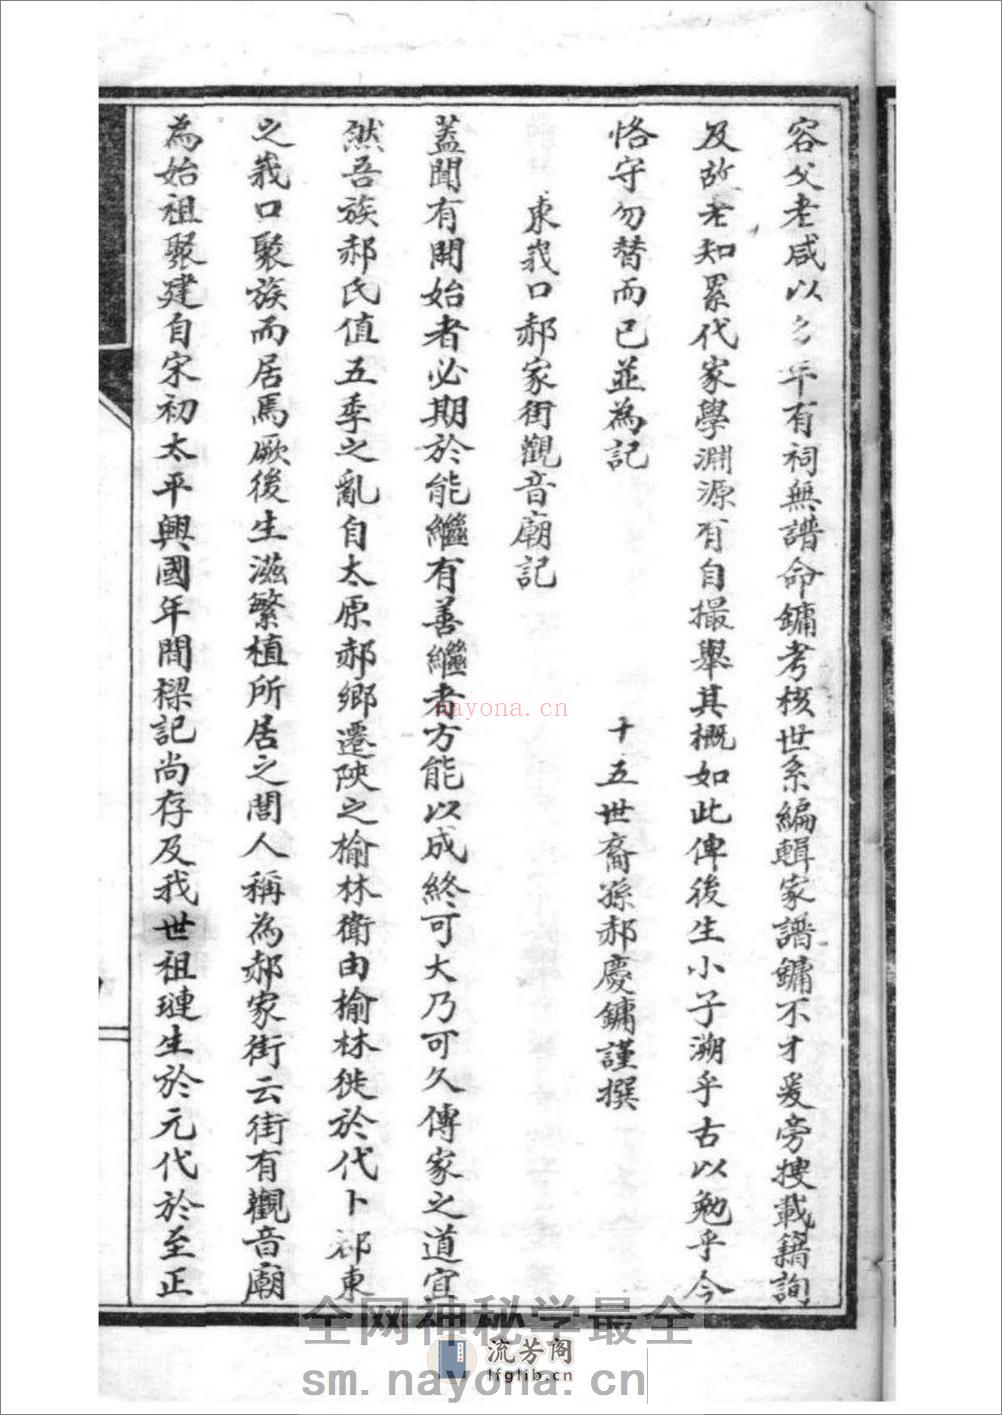 容父老咸以多年有祠無譜命鏞考核世系編輯家譜鏞不才爰旁搜載籍詢
及故老知累代家學淵源有自撮舉其概如此俾後生小子溯乎古以勉乎今
恪守勿替而已並為記
十五世裔孫郝慶鏞謹撰
東峩口郝家街觀音廟記
蓋聞有開始者必期於能繼有善繼者方能以成終可大乃可久傳家之道宜
然吾族郝氏值五季之亂自太原郝鄉遷陝之榆林衛由榆林徙於代卜郡東
之峩口聚族而居焉厥後生滋繁植所居之閭人稱為郝家街云街有觀音廟
為始祖聚建自宋初太平興國年間樑記尚存及我世祖璉生於元代於至正
nayona.cn
全网神秘学最全
流芳阁
lfglib.cn
sm.nayona.cn